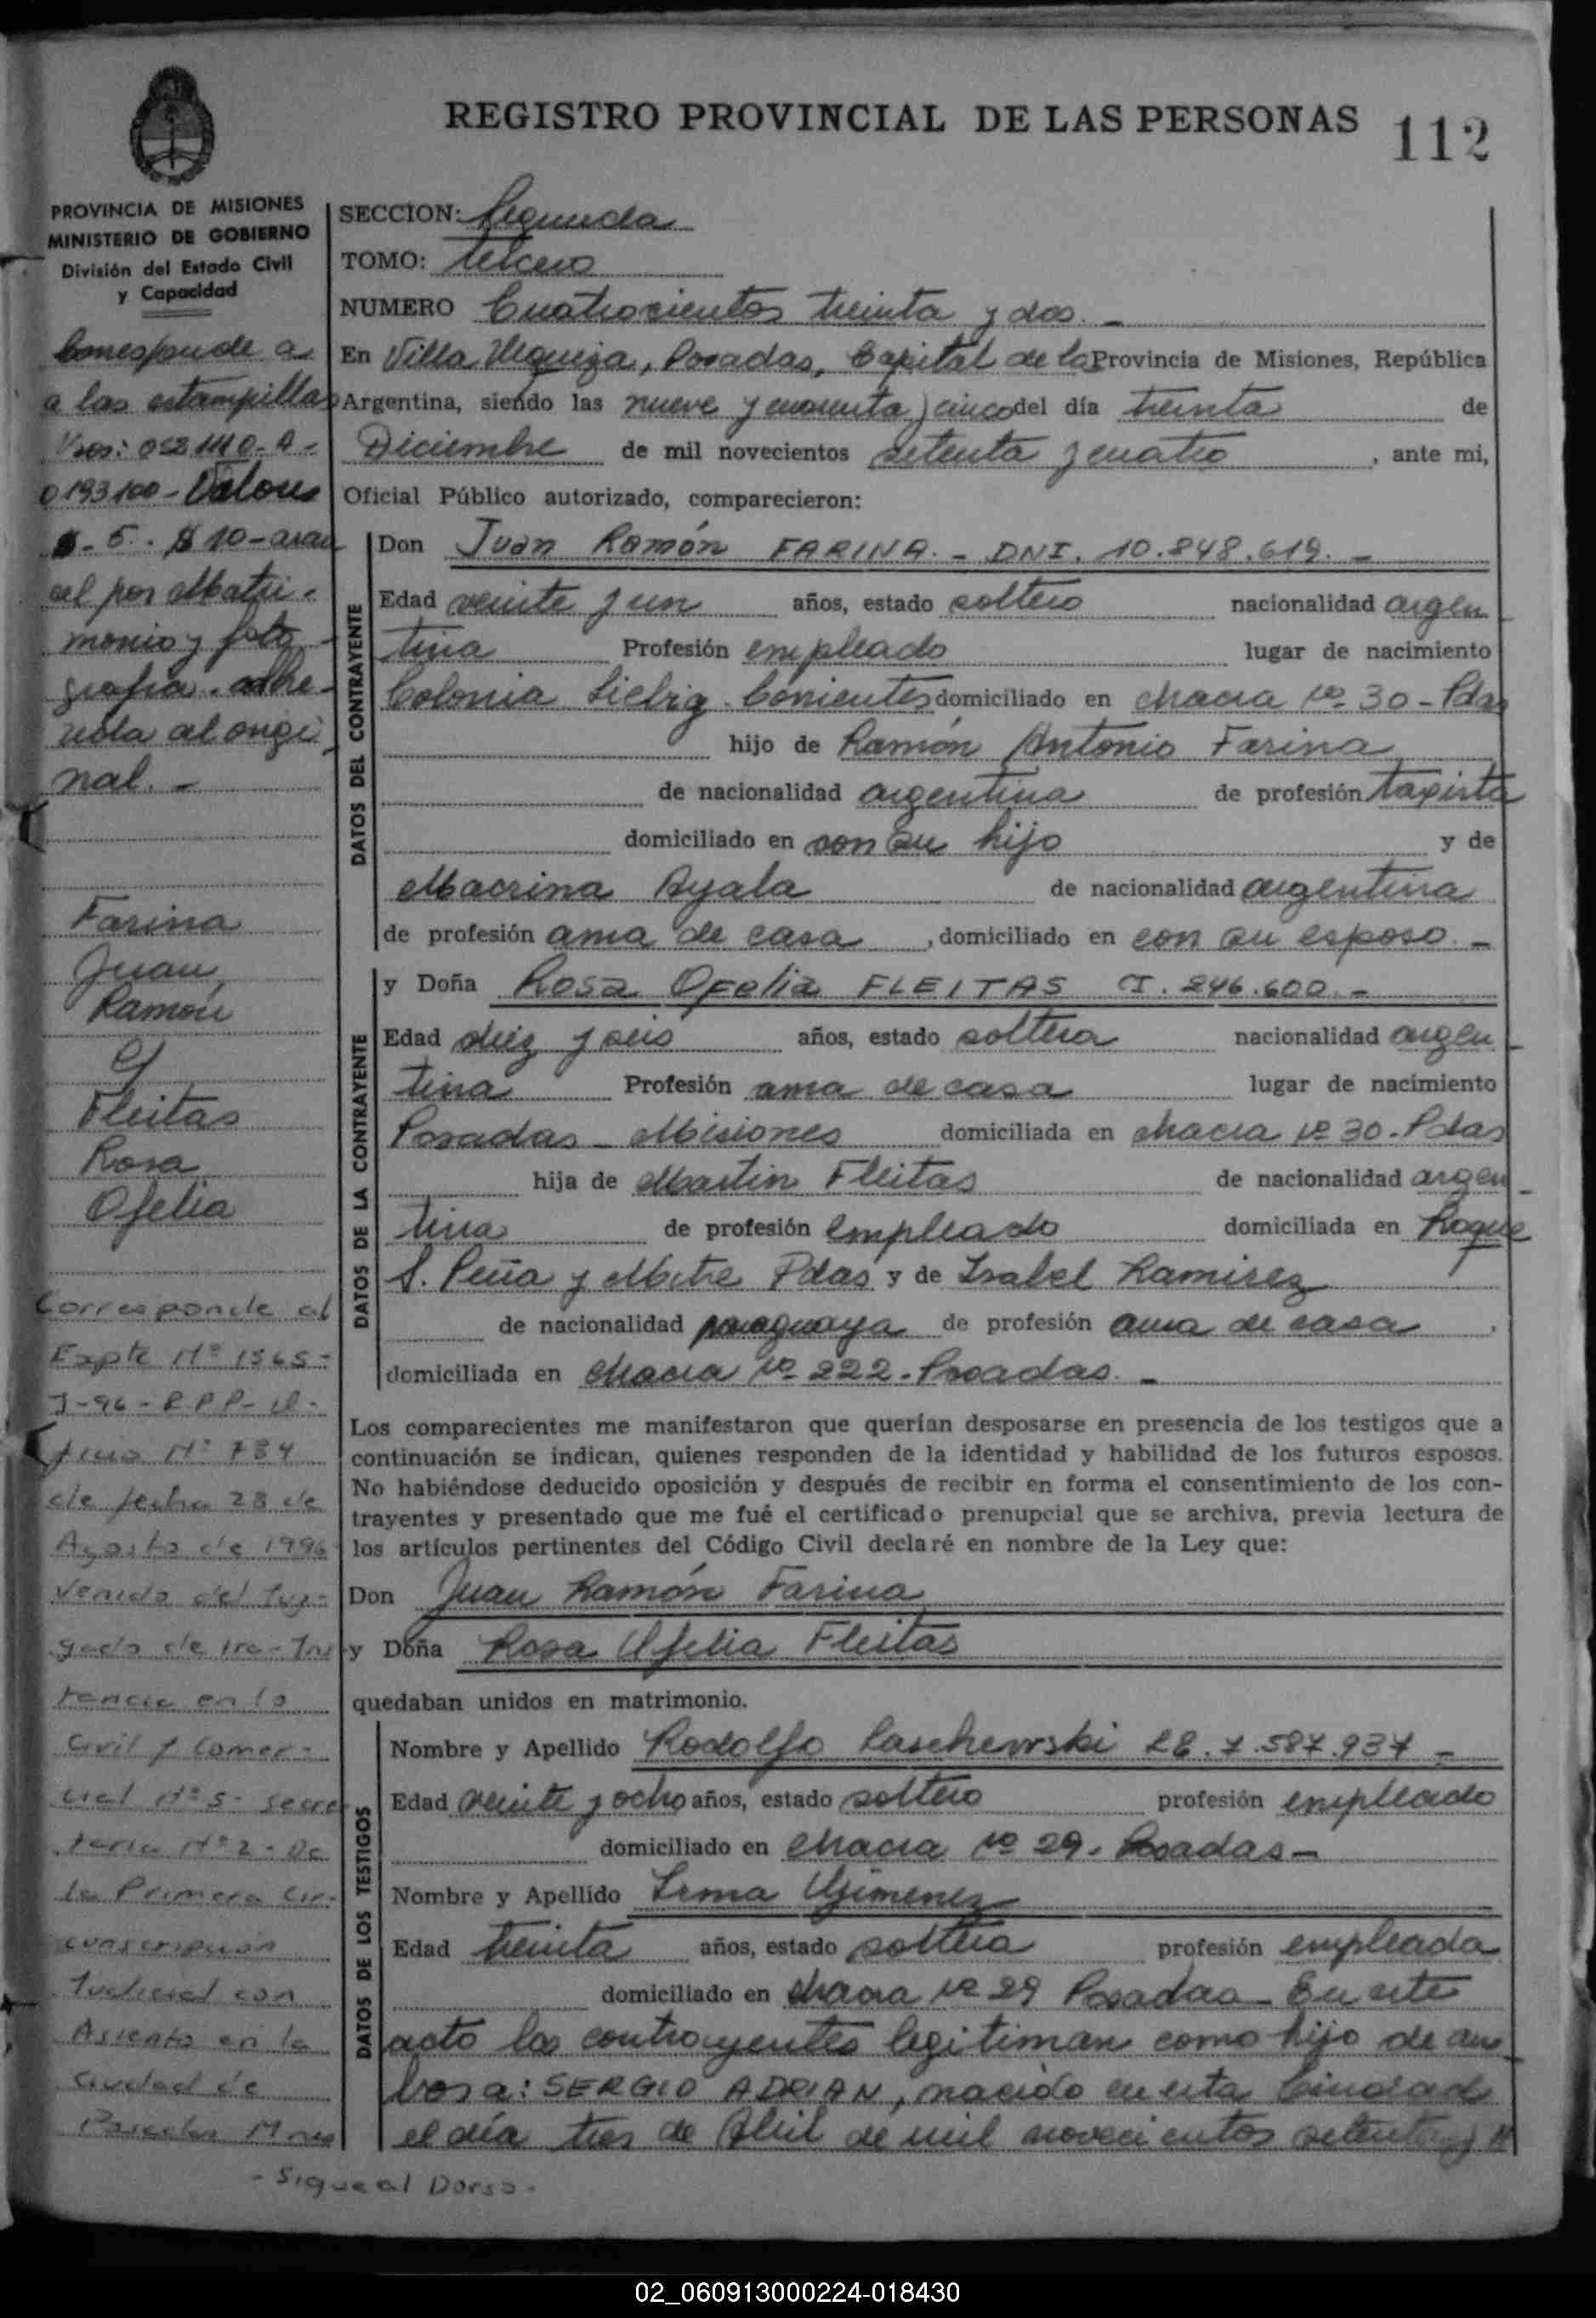 REGISTRO PROVINCIAL DE LAS PERSONAS
112
PROVINCIA DE MISIONES
MINISTERIO DE GOBIERNO
División del Estado Civil
y Capacidad
Corresponde a
a las estampillas
Nros: 052110-A-
0193100-Valores
$-5.- $10-aran
cel por Matri-
monio y foto
grafia. adhe-
rida al origi
nal.-
Farina
Juan
Ramón
y
Fleitas
Rosa
Ofelia
Corresponde al
Expte Nº 1565-
J-96-R.P.P-
Nº 734
de fecha 28 de
Agosto de 1996
venido del Juz-
gado de 1ra-Ins
tancia en lo
Civil y Comer-
cial Nº 5- Secre
taria Nº 2- De
la Primera Cir-
cunscripcion
Judicial con
Asiento en la
Ciudad de
Posadas Mnes
SECCION: Segunda
TOMO: tercero
NUMERO Cuatrocientos treinta y dos.-
En Villa Urquiza, Posadas, Capital de la Provincia de Misiones, República
Argentina, siendo las nueve y cuarenta y cinco del día treinta de
Diciembre de mil novecientos setenta y cuatro, ante mi,
Oficial Público autorizado, comparecieron:
DATOS DEL CONTRAYENTE
Don Juan Ramón FARINA.- DNI. 10.848.619.-
Edad veinte y un años, estado soltero nacionalidad argen
tina Profesión empleado lugar de nacimiento
Colonia Liebig. Corrientes domiciliado en chacra Nº 30-Pdas
hijo de Ramón Antonio Farina
de nacionalidad argentina de profesión taxista
domiciliado en con su hijo y de
Macrina Ayala de nacionalidad argentina
de profesión ama de casa, domiciliado en con su esposo.-
DATOS DE LA CONTRAYENTE
y Doña Rosa Ofelia FLEITAS CI. 246.600.-
Edad diez y seis años, estado soltera nacionalidad argen
tina Profesión ama de casa lugar de nacimiento
Posadas-Misiones domiciliada en chacra Nº 30-Pdas
hija de Martin Fleitas de nacionalidad argen
tina de profesión empleado domiciliada en Roque
S. Peña y Mitre Pdas y de Isabel Ramirez
de nacionalidad paraguaya de profesión ama de casa
domiciliada en chacra Nº 222-Posadas.-
Los comparecientes me manifestaron que querían desposarse en presencia de los testigos que a
continuación se indican, quienes responden de la identidad y habilidad de los futuros esposos.
No habiéndose deducido oposición y después de recibir en forma el consentimiento de los con-
trayentes y presentado que me fué el certificado prenupcial que se archiva, previa lectura de
los artículos pertinentes del Código Civil declaré en nombre de la Ley que:
Don Juan Ramón Farina
y Doña Rosa Ofelia Fleitas
quedaban unidos en matrimonio.
DATOS DE LOS TESTIGOS
Nombre y Apellido Rodolfo Paschewski LE. 7.587.937-
Edad veinte y ocho años, estado soltero profesión empleado
domiciliado en chacra Nº 29-Posadas-
Nombre y Apellido Irma Gimenez
Edad treinta años, estado soltera profesión empleada
domiciliado en chacra Nº 29 Posadas- En este
acto los contrayentes legitiman como hijo de am
bos a: SERGIO ADRIAN, nacido en esta Ciudad
el día tres de Abril de mil novecientos setenta y
-Sigue al Dorso-
02_060913000224-018430